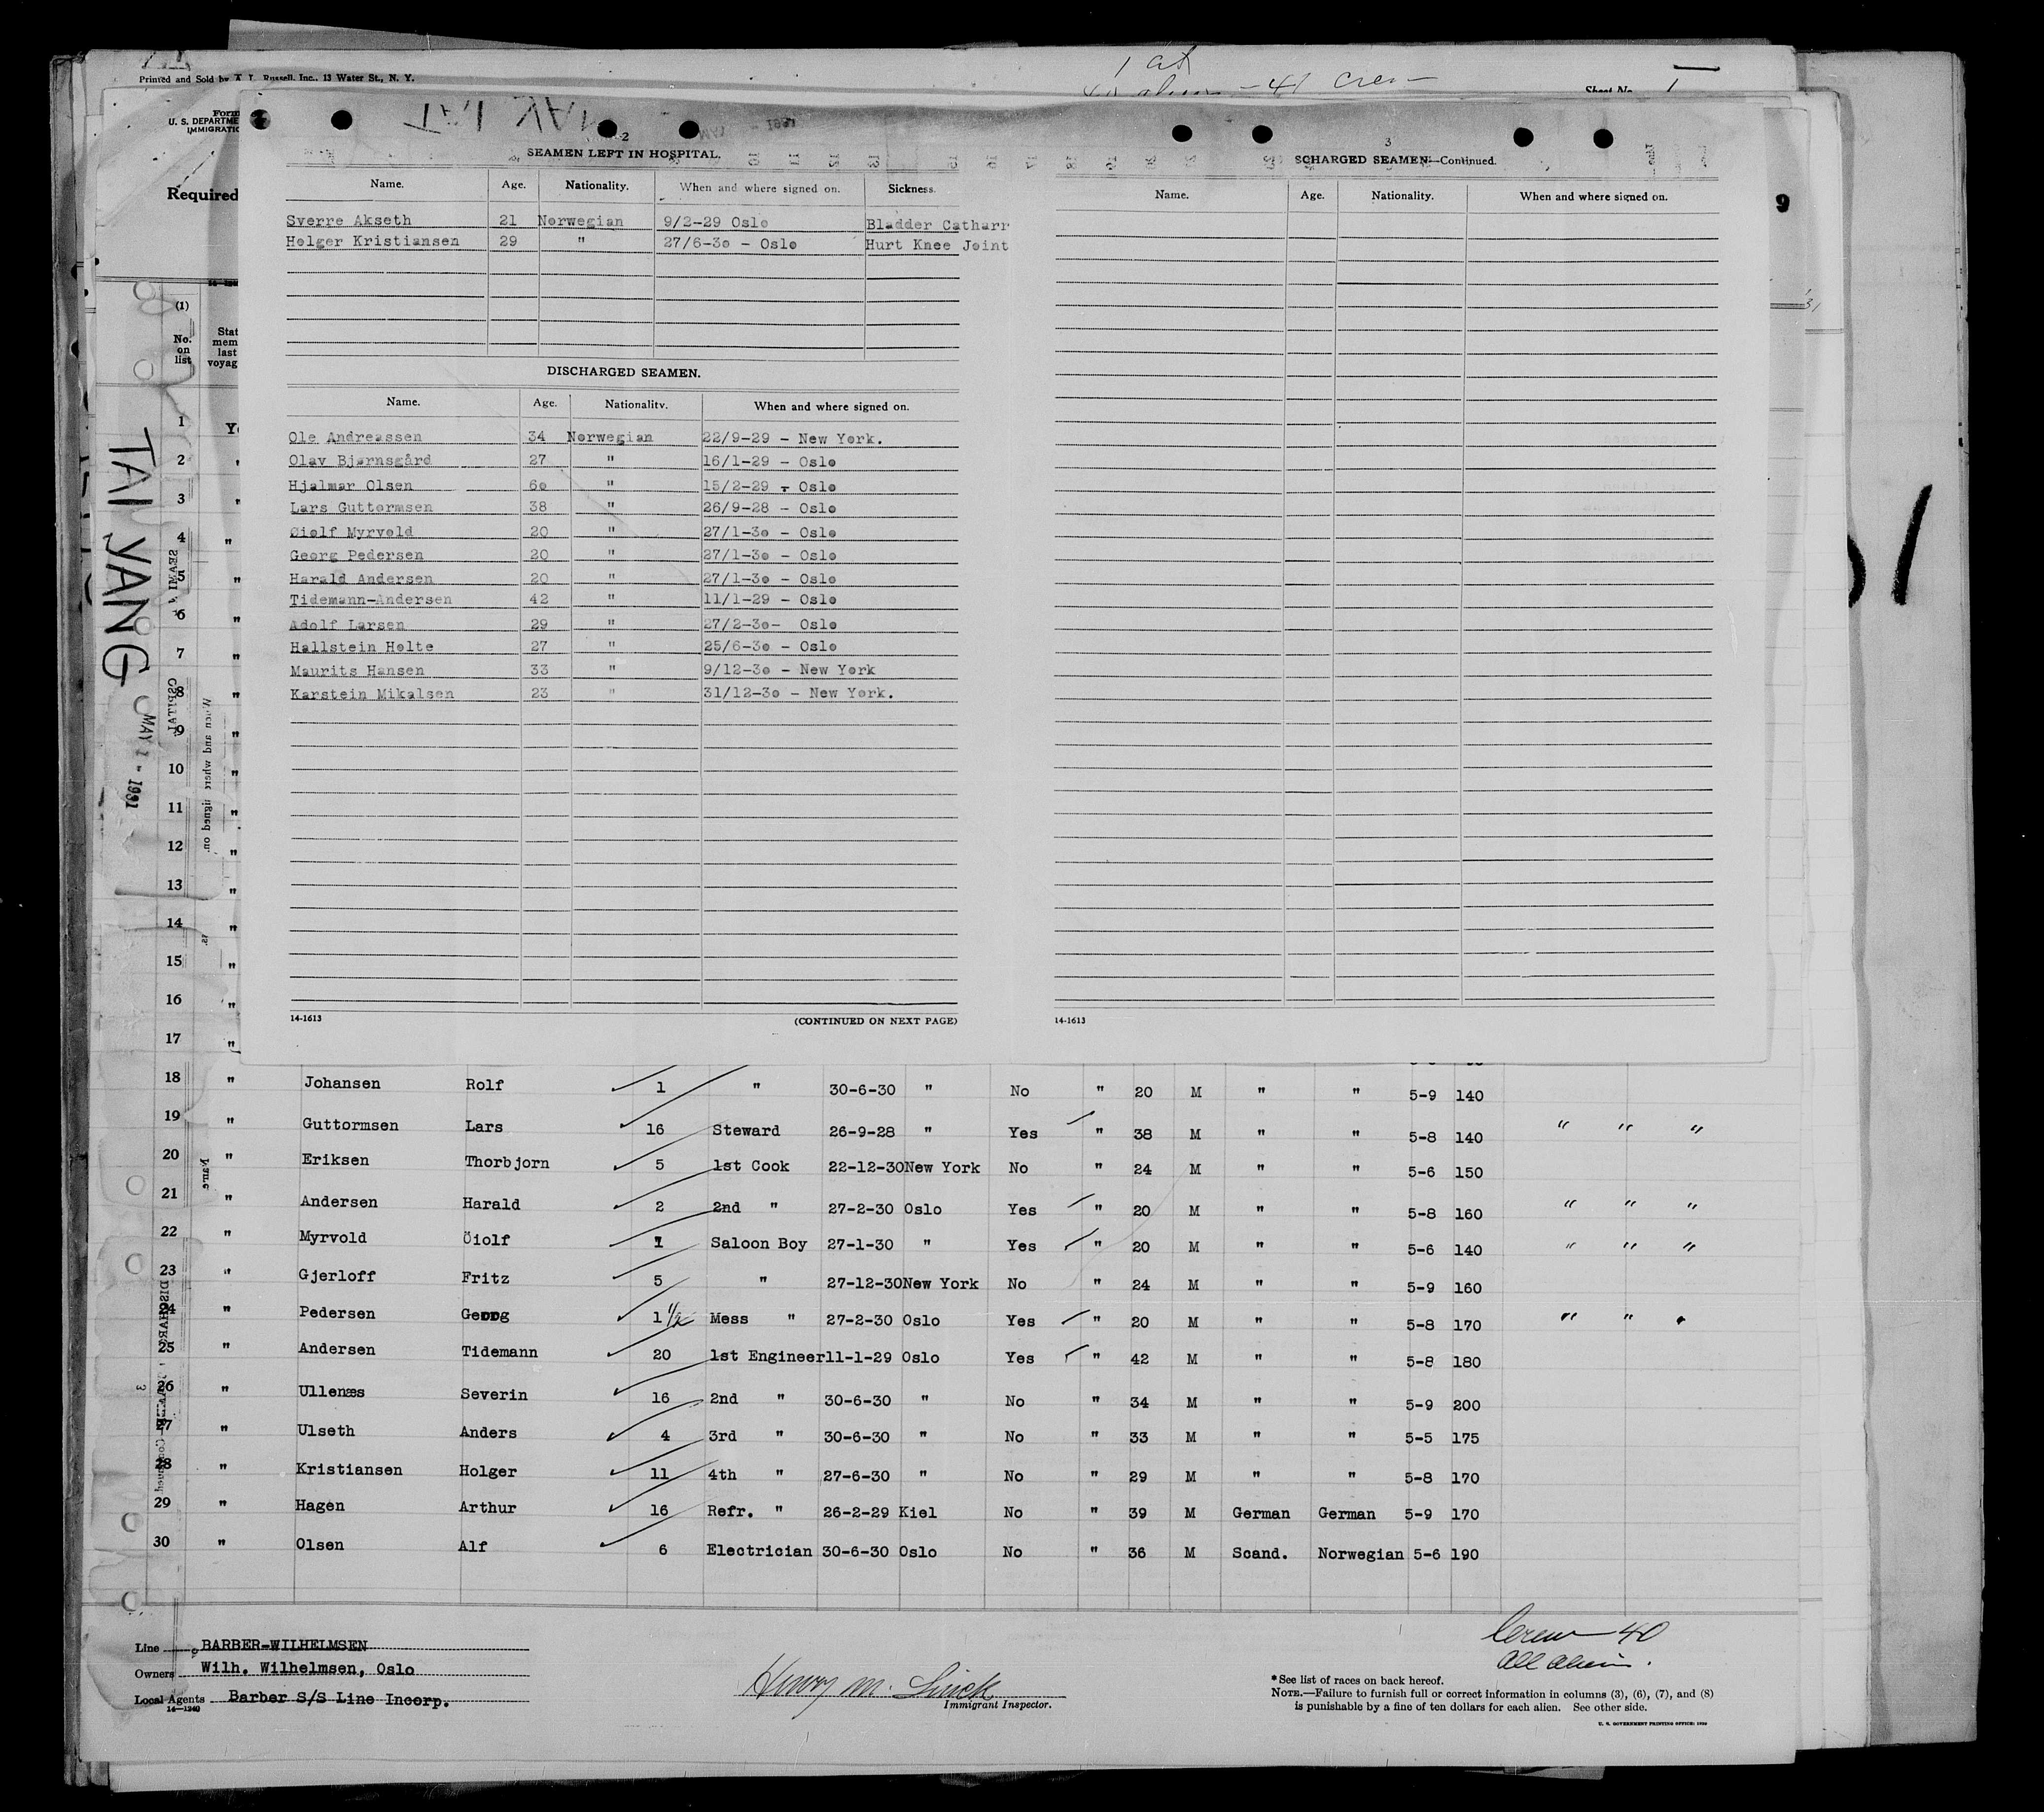 Printed and Sold by T. L. Russell, Inc., 13 Water St., N. Y.
1 at
- 41 crew
Sheet No. 1
Form
U. S. DEPARTME
IMMIGRATIO
Required
9
TAI YAN
2
SEAMEN LEFT IN HOSPITAL.
Name. Age. Nationality. When and where signed on. Sickness.
Sverre Akseth 21 Norwegian 9/2-29 Oslo Bladder Catharr
Holger Kristiansen 29 " 27/6-30 - Oslo Hurt Knee Joint
DISCHARGED SEAMEN.
Name. Age. Nationality. When and where signed on.
Ole Andreassen 34 Norwegian 22/9-29 - New York.
Olav Bjørnsgård 27 " 16/1-29 - Oslo
Hjalmar Olsen 60 " 15/2-29 - Oslo
Lars Guttormsen 38 " 26/9-28 - Oslo
Øiolf Myrvold 20 " 27/1-30 - Oslo
Georg Pedersen 20 " 27/1-30 - Oslo
Harald Andersen 20 " 27/1-30 - Oslo
Tidemann-Andersen 42 " 11/1-29 - Oslo
Adolf Larsen 29 " 27/2-30- Oslo
Hallstein Holte 27 " 25/6-30 - Oslo
Maurits Hansen 33 " 9/12-30 - New York
Karstein Mikalsen 23 " 31/12-30 - New York.
14-1613 (CONTINUED ON NEXT PAGE)
3
SCHARGED SEAMEN—Continued.
Name. Age. Nationality. When and where signed on.
14-1613
(1)
No. on list
Stat
mem
last
voyag
TAI YANG
MAY 1 - 1931
1 Ye
2 "
3 "
4 "
5 "
6 "
7 "
8 "
9 "
10 "
11 "
12 "
13 "
14 "
15 "
16 "
17 "
18 " Johansen Rolf 1 " 30-6-30 " No " 20 M " " 5-9 140
19 " Guttormsen Lars 16 Steward 26-9-28 " Yes " 38 M " " 5-8 140 " " "
20 " Eriksen Thorbjorn 5 1st Cook 22-12-30 New York No " 24 M " " 5-6 150
21 " Andersen Harald 2 2nd " 27-2-30 Oslo Yes " 20 M " " 5-8 160 " " "
22 " Myrvold Öiolf 1 Saloon Boy 27-1-30 " Yes " 20 M " " 5-6 140 " " "
23 " Gjerloff Fritz 5 " 27-12-30 New York No " 24 M " " 5-9 160
24 " Pedersen Georg 1 1/2 Mess " 27-2-30 Oslo Yes " 20 M " " 5-8 170 " " "
25 " Andersen Tidemann 20 1st Engineer 11-1-29 Oslo Yes " 42 M " " 5-8 180
26 " Ullenæs Severin 16 2nd " 30-6-30 " No " 34 M " " 5-9 200
27 " Ulseth Anders 4 3rd " 30-6-30 " No " 33 M " " 5-5 175
28 " Kristiansen Holger 11 4th " 27-6-30 " No " 29 M " " 5-8 170
29 " Hagen Arthur 16 Refr. " 26-2-29 Kiel No " 39 M German German 5-9 170
30 " Olsen Alf 6 Electrician 30-6-30 Oslo No " 36 M Scand. Norwegian 5-6 190
Line BARBER-WILHELMSEN
Owners Wilh. Wilhelmsen, Oslo
Local Agents Barber S/S Line Incorp.
14-1240
Immigrant Inspector.
Crew 40
All alien.
* See list of races on back hereof.
NOTE.—Failure to furnish full or correct information in columns (3), (6), (7), and (8)
is punishable by a fine of ten dollars for each alien. See other side.
U. S. GOVERNMENT PRINTING OFFICE: 1930